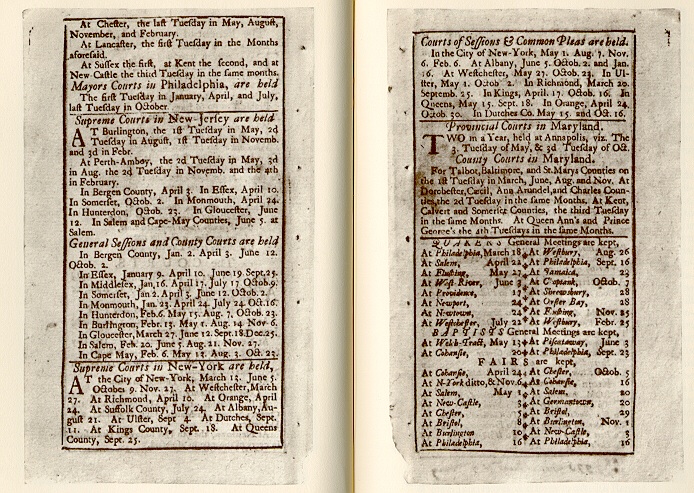 At Chester, the last Tuesday in May, August,
November, and February.
At Lancaster, the first Tuesday in the Months
aforesaid.
At Sussex the first, at Kent the second, and at
New-Castle the third Tuesday in the same months.
Mayors Courts in Philadelphia, are held
The first Tuesday in January, April, and July,
last Tuesday in October.
Supreme Courts in New-Jersey are held
AT Burlington, the 1st Tuesday in May, 2d
Tuesday in August, 1st Tuesday in Novemb.
and 3d in Febr.
At Perth-Amboy, the 2d Tuesday in May, 3d
in Aug. the 2d Tuesday in Novemb. and the 4th
in February.
In Bergen County, April 3. In Essex, April 10.
In Somerset, Octob. 2. In Monmouth, April 24.
In Hunterdon, Octob. 23. In Gloucester, June
12. In Salem and Cape-May Counties, June 5. at
Salem.
General Sessions and County Courts are held
In Bergen County, Jan. 2. April 3. June 12.
Octob. 2.
In Essex, January 9. April 10. June 19 Sept. 25.
In Middlesex, Jan, 16. April 17. July 17 Octob. 9.
In Somerset, Jan 2. April 3. June 12. Octob. 2.
In Monmouth, Jan. 23. April 24. July 24. Oct. 16.
In Hunterdon, Feb. 6. May 15. Aug. 7. Octob. 23.
In Burlington, Febr. 13. May 1. Aug. 14. Nov 6.
In Gloucester, March 27. June 12. Sept. 18. Dec. 25.
In Salem, Feb. 20. June 5. Aug. 21. Nov. 27.
In Cape May, Feb. 6. May 13. Aug. 3. Oct. 23.
Supreme Courts in New-York are held,
AT the City of New-York, March 13. June 5.
October 9. Nov. 27. At Westchester, March
27. At Richmond, April 10. At Orange, April
24. At Suffolk County, July 24. At Albany, Au-
gust 21. At Ulster, Sept 4. At Dutchess, Sept.
11. At Kings County, Sept. 18. At Queens
County, Sept. 25.
Courts of Sessions & Common Pleas are held.
In the City of New-York, May 1. Aug. 7. Nov.
6. Feb. 6. At Albany, June 5. Octob. 2. and Jan.
16. At Westchester, May 27. Octob. 23. In Ul-
ster, May 1. Octob 2. In Richmond, March 20.
Septemb. 25. In Kings, April. 17. Octob. 16. In
Queens, May 15. Sept. 18. In Orange, April 24.
Octob. 30. In Dutches Co. May 15. and Oct. 16.
Provincial Courts in Maryland.
TWO in a Year, held at Annapolis, viz. The
3. Tuesday of May, & 3d Tuesday of Oct.
County Courts in Maryland.
For Talbot, Baltimore, and St. Marys Counties on
the 1st Tuesday in March, June, Aug. and Nov. At
Dorchester, Cecil, Ann Arundel, and Charles Coun-
ties, the 2d Tuesday in the same Months. At Kent,
Calvert and Somerset Counties, the third Tuesday
in the same Months. At Queen Ann's and Prince
George's the 4th Tuesdays in the same Months.
QUAKERS General Meetings are kept,
At Philadelphia, March 18 At Westbury, Aug. 26
At Salem, April 22 At Philadelphia, Sept. 16
At Flushing, May 27 At Jamaica, 29
At West-River, June 3 At Coptank, Octob. 7
At Providence, 17 At Shrewsbury, 28
At Newport, 24 At Oyster Bay, 28
At Newtown, 24 At Flushing, Nov. 25
At Westchester, July 22 At Westbury, Febr. 25
BAPTISTS General Meetings are kept,
At Welch-Tract, May 13 At Piscataway, June 3
At Cohansie, 20 At Philadelphia, Sept. 23
FAIRS are kept,
At Cohansie, April 24 At Chester, Octob. 5
At N-York ditto, & Nov. 6 At Cohansie, 16
At Salem, May 1 At Salem, 20
At New-Castle, 3 At Germantown, 20
At Chester, 5 At Bristol, 29
At Bristol, 8 At Burlington, Nov. 1
At Burlington 10 At New-Castle, 3
At Philadelphia, 16 At Philadelphia, 16